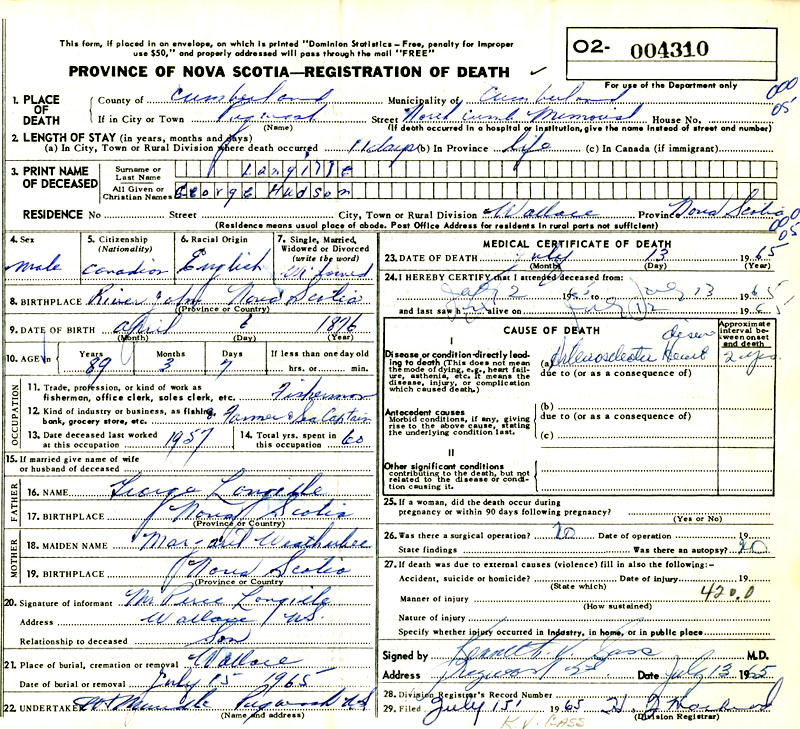 This form, if placed in an envelope, on which is printed "Dominion Statistics - Free, penalty for improper
use $50," and properly addressed will pass through the mail "FREE"
O2- 004310
PROVINCE OF NOVA SCOTIA—REGISTRATION OF DEATH
For use of the Department only
000
05
1. PLACE OF DEATH
County of Cumberland Municipality of Cumberland
If in City or Town Pugwash Street North Cumb Memorial House No.
(Name) (If death occurred in a hospital or institution, give the name instead of street and number)
2. LENGTH OF STAY (in years, months and days)
(a) In City, Town or Rural Division where death occurred 11 days (b) In Province life (c) In Canada (if immigrant)
3. PRINT NAME OF DECEASED
Surname or Last Name Langille
All Given or Christian Names George Hudson
RESIDENCE No Street City, Town or Rural Division Wallace Province Nova Scotia
(Residence means usual place of abode. Post Office Address for residents in rural parts not sufficient)
000
05
4. Sex
male
5. Citizenship (Nationality)
Canadian
6. Racial Origin
English
7. Single, Married, Widowed or Divorced (write the word)
Widowed
8. BIRTHPLACE River John Nova Scotia
(Province or Country)
9. DATE OF BIRTH April 6 1876
(Month) (Day) (Year)
10. AGE in Years Months Days If less than one day old
89 3 7 hrs. or min.
OCCUPATION
11. Trade, profession, or kind of work as
fisherman, office clerk, sales clerk, etc. Fisherman
12. Kind of industry or business, as fishing,
bank, grocery store, etc. Farmer & Sea Captain
13. Date deceased last worked
at this occupation 1957
14. Total yrs. spent in
this occupation 60
15. If married give name of wife
or husband of deceased
FATHER
16. NAME George Langille
17. BIRTHPLACE Nova Scotia
(Province or Country)
MOTHER
18. MAIDEN NAME Margaret Weatherbee
19. BIRTHPLACE Nova Scotia
(Province or Country)
20. Signature of informant Langille
Address Wallace NS.
Relationship to deceased Son
21. Place of burial, cremation or removal Wallace
Date of burial or removal July 15 1965
22. UNDERTAKER Pugwash NS
(Name and address)
MEDICAL CERTIFICATE OF DEATH
23. DATE OF DEATH July 13 1965
(Month) (Day) (Year)
24. I HEREBY CERTIFY that I attended deceased from:
July 2 1965 to July 13 1965
and last saw h alive on July 12 1965
CAUSE OF DEATH
Approximate interval between onset and death
I
Disease or condition directly leading to death (This does not mean the mode of dying, e.g., heart failure, asthenia, etc. It means the disease, injury, or complication which caused death.)
(a) Arteriosclerotic Heart disease 2 yrs.
due to (or as a consequence of)
Antecedent causes
Morbid conditions, if any, giving rise to the above cause, stating the underlying condition last.
(b)
due to (or as a consequence of)
(c)
II
Other significant conditions
contributing to the death, but not related to the disease or condition causing it.
25. If a woman, did the death occur during
pregnancy or within 90 days following pregnancy?
(Yes or No)
26. Was there a surgical operation? no Date of operation 19
State findings Was there an autopsy? no
27. If death was due to external causes (violence) fill in also the following:-
Accident, suicide or homicide? Date of injury 19
(State which)
Manner of injury 420.0
(How sustained)
Nature of injury
Specify whether injury occurred in industry, in home, or in public place
Signed by Kenneth V. Cass M.D.
Address Pugwash NS Date July 13 1965
28. Division Registrar's Record Number
29. Filed July 15 1965
(Division Registrar)
K.V. CASS